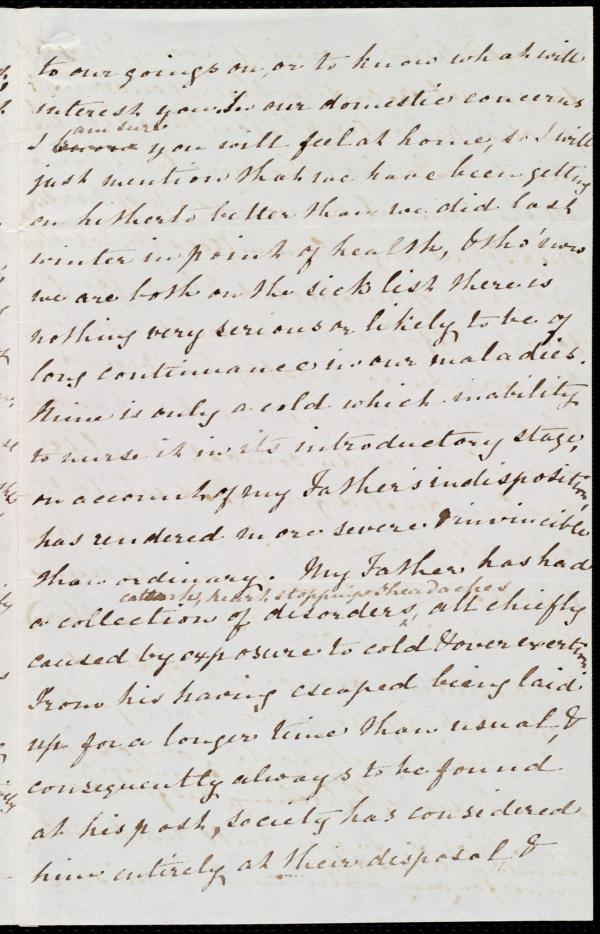 to our goings on, or to know what will
interest you. In our domestic concerns
am sure
I you will feel at home, so I will
just mention that we have been getting
on hitherto better than we did last
winter in point of health, & tho' now
we are both on the sick list there is
nothing very serious or likely to be of
long continuance in our maladies.
Mine is only a cold which inability
to nurse it in its introductory stage,
on account of my Father's indisposition,
has rendered more severe & invincible
than ordinary. My Father has had
catarrhs, heart stoppings & headaches
a collection of disorders, all chiefly
caused by exposure to cold & over exertion.
From his having escaped being laid
up for a longer time than usual, &
consequently always to be found
at his post, society has considered
him entirely at their disposal, &